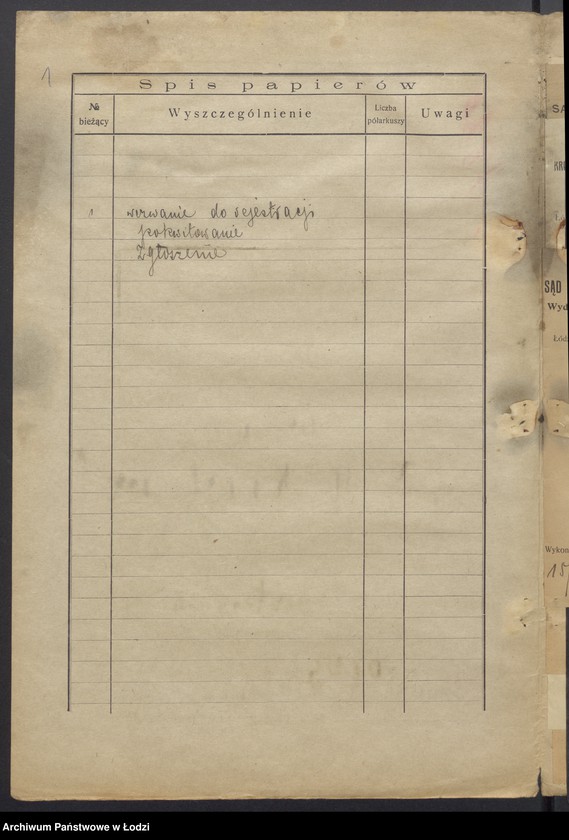 1
Spis papierów
№ bieżący
Wyszczególnienie
Liczba półarkuszy
Uwagi
1 wezwanie do rejestracji
pokwitowanie
Zgłoszenie
SĄD
Wyd
Łód
Wykon
15
Archiwum Państwowe w Łodzi